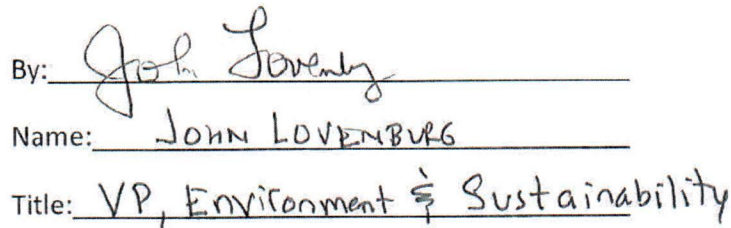 By: John Lovenburg
Name: JOHN LOVENBURG
Title: VP, Environment & Sustainability